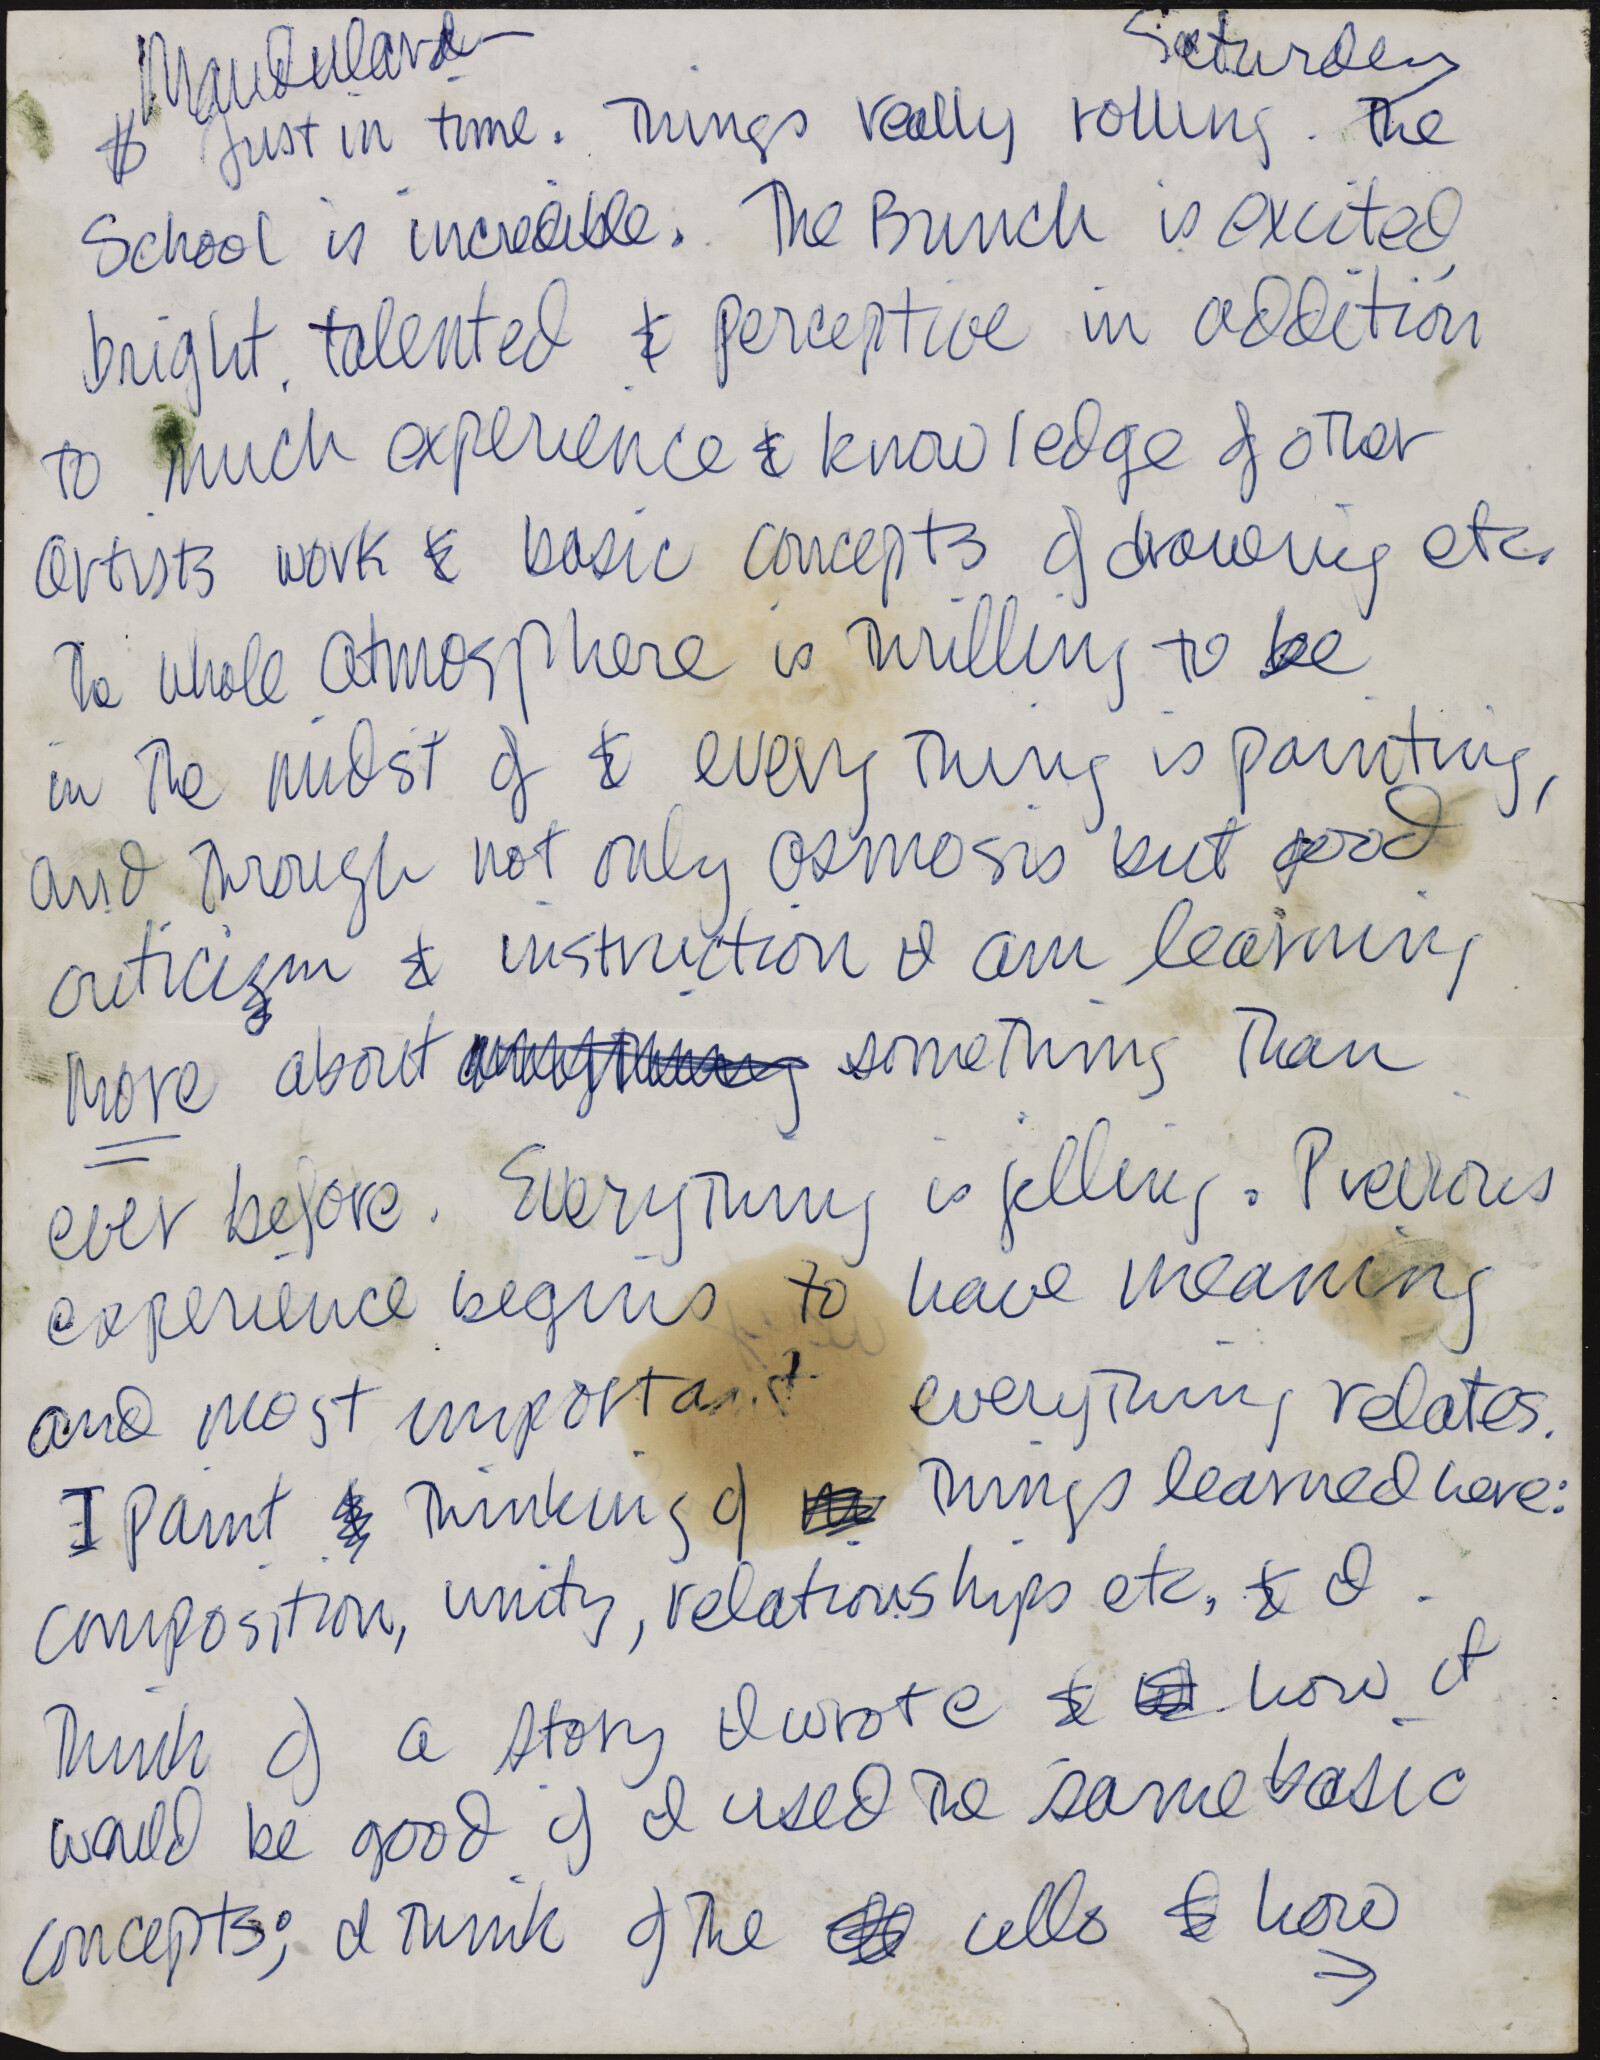 Saturday
Just in time. Things really rolling. The
School is incredible. The Bunch is excited,
bright, talented & perceptive in addition
to much experience & knowledge of other
artists work & basic concepts of drawing etc.
The whole atmosphere is thrilling to be
in the midst of & every thing is painting,
and through not only osmosis but good
criticism & instruction I am learning
more about something than
ever before. Everything is jelling. Previous
experience begins to have meaning
and most important everything relates.
I paint thinking of things learned here:
composition, unity, relationships etc, & I
think of a story I wrote & how it
would be good if I used the same basic
concepts; I think of the cells & how
→